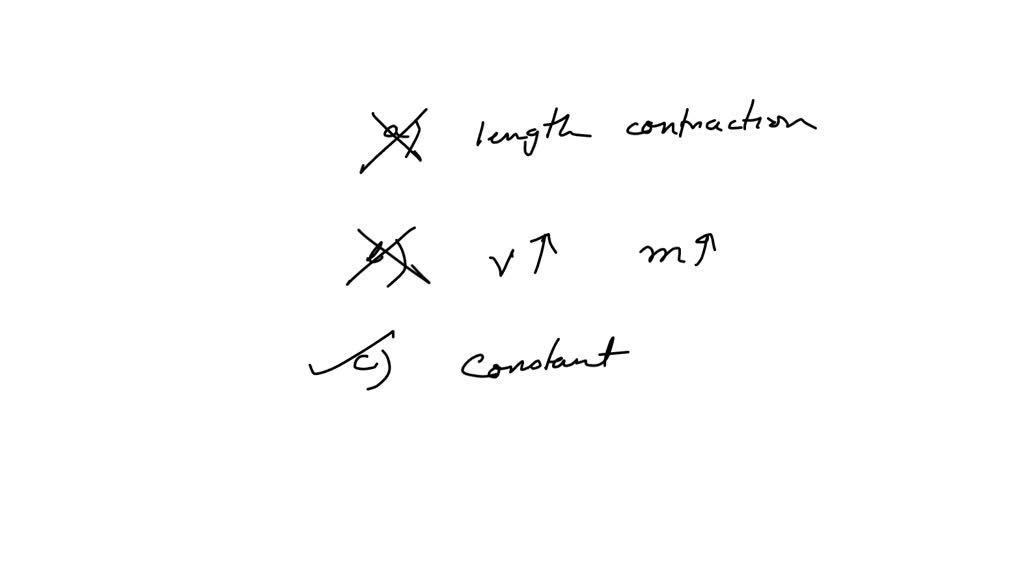 a) length contraction
b) v↑ m↑
c) constant